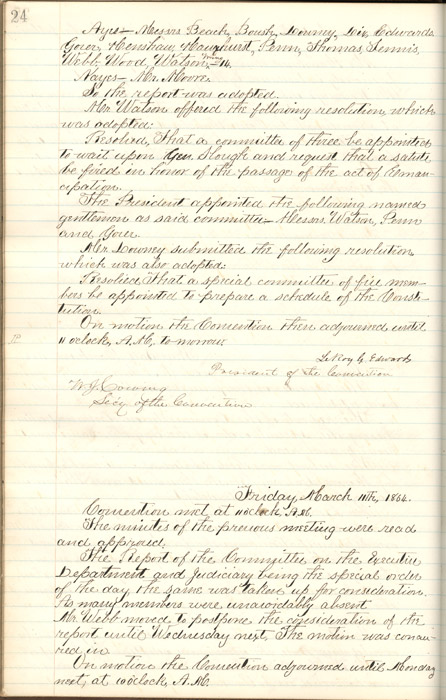 24
Ayes - Messrs Beach, Boush, Downey, Dix, Edwards
Gover, Henshaw, Hawxhurst, Penn, Thomas, Tennis,
Webb, Wood, Watson, - 14.
Nayes - Mr. Moore.
So the report was adopted.
Mr. Watson offered the following resolution, which
was adopted:
Resolved, That a committee of three be appointed
to wait upon Gen. Slough and request that a salute
be fired in honor of the passage of the act of Eman-
cipation.
The President appointed the following named
gentlemen as said committee - Messrs. Watson, Penn
and Gover.
Mr. Downey submitted the following resolution
which was also adopted:
Resolved That a special committee of five mem-
bers be appointed to prepare a schedule of the Consti-
tution.
On motion the Convention then adjourned until
11 oclock, A.M., to-morrow
LeRoy G. Edwards
President of the Convention
W. J. Cowing
Secy of the Convention
Friday, March 11th, 1864.
Convention met at 11 oclock A.M.
The minutes of the previous meeting were read
and approved.
The Report of the Committee on the Executive
Department and Judiciary being the special order
of the day the same was taken up for consideration.
As many members were unavoidably absent
Mr. Webb moved to postpone the consideration of the
report until Wednesday next. The motion was conur-
red in
On motion the Convention adjourned until Monday
next, at 10 oclock, A.M.